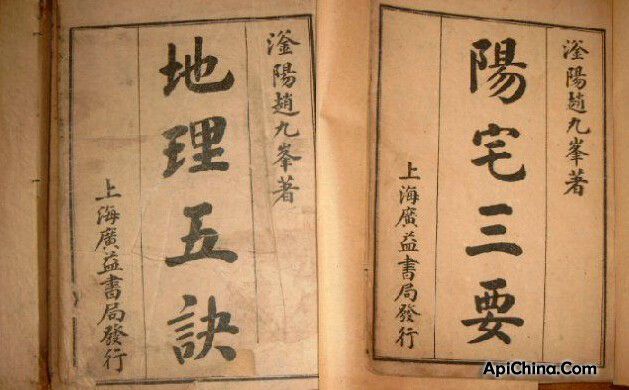 滏陽趙九峯著
地理五訣
上海廣益書局發行
滏陽趙九峯著
陽宅三要
上海廣益書局發行
ApiChina.Com